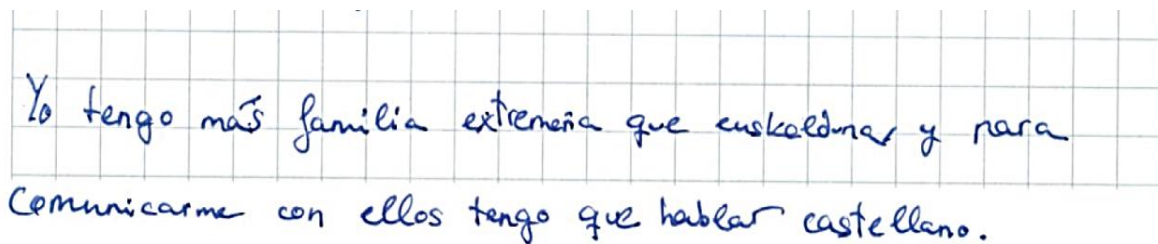 Yo tengo más familia extremeña que euskaldunar y para
comunicarme con ellos tengo que hablar castellano.